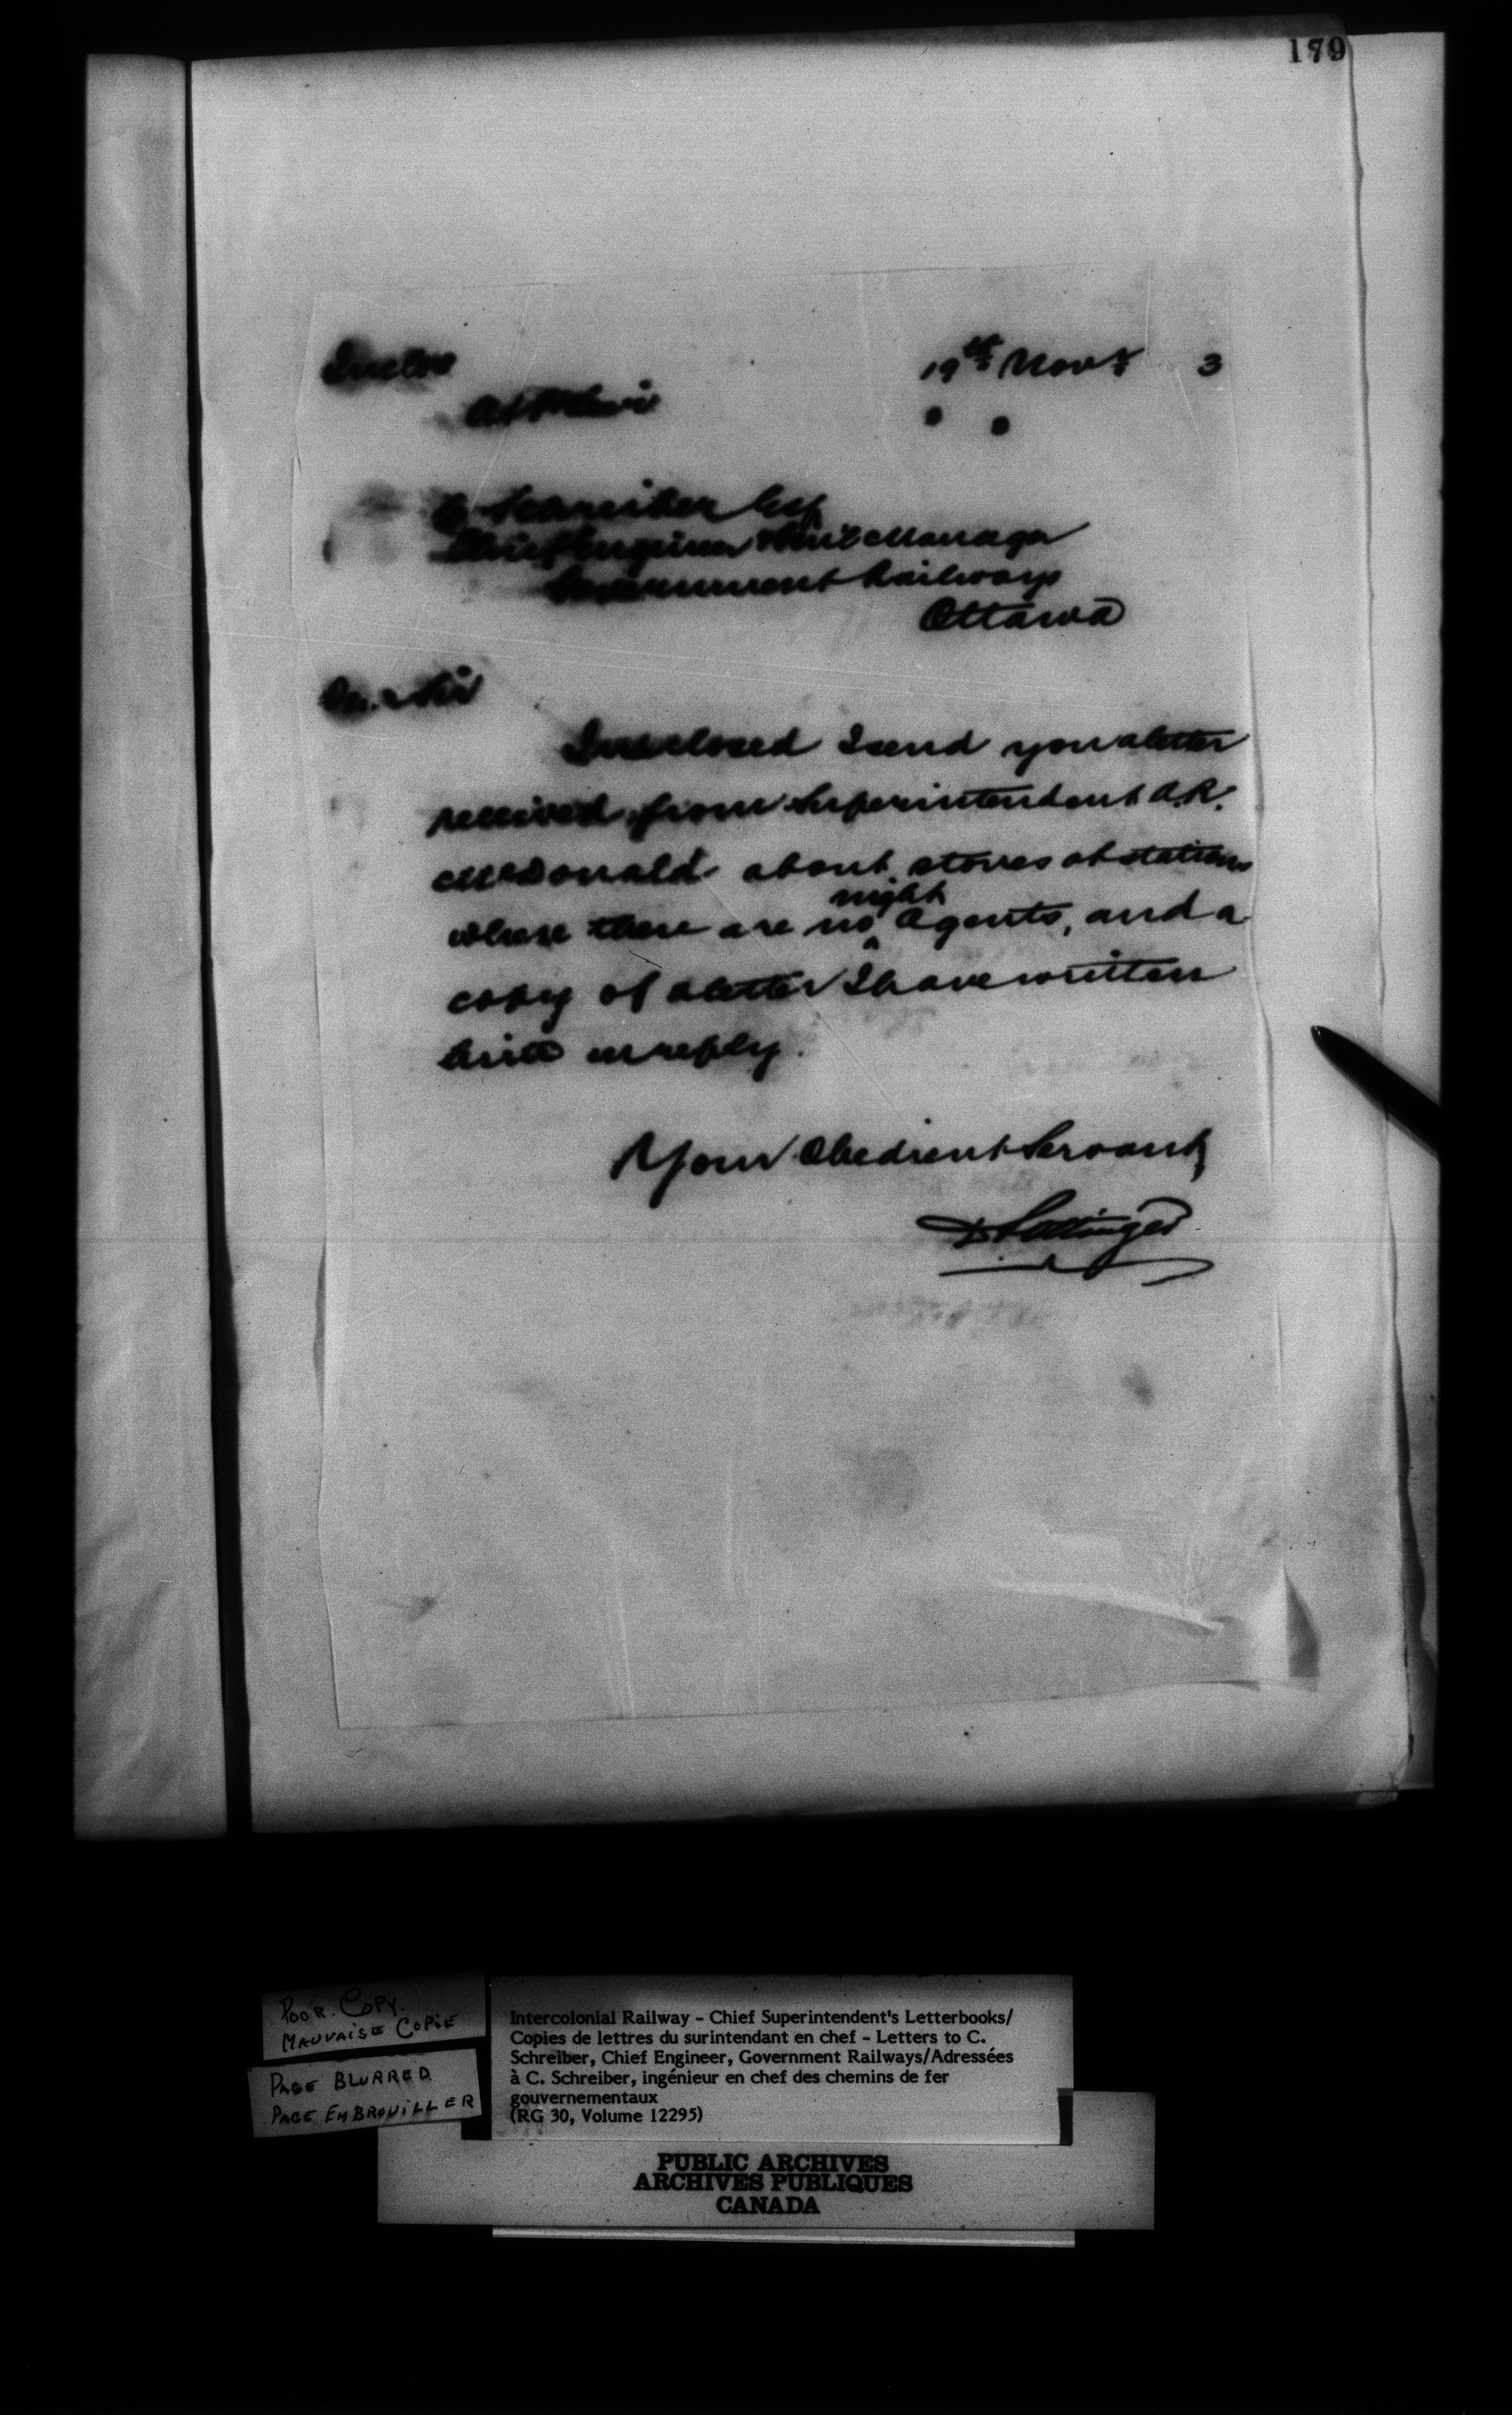 179
19th Novr 3
C. Schreiber Esq
Chief Engineer & Gen'l Manager
Government Railways
Ottawa
Dear Sir
Inclosed I send you a letter
received from Superintendent A.R.
McDonald about stoves at stations
night
where there are no ^ Agents, and a
copy of a letter I have written
him in reply.
Your Obedient Servant,
D Pottinger
POOR. COPY.
MAUVAISE COPIE
PAGE BLURRED.
PAGE EMBROUILLER
Intercolonial Railway - Chief Superintendent's Letterbooks/
Copies de lettres du surintendant en chef - Letters to C.
Schreiber, Chief Engineer, Government Railways/Adressées
à C. Schreiber, ingénieur en chef des chemins de fer
gouvernementaux
(RG 30, Volume 12295)
PUBLIC ARCHIVES
ARCHIVES PUBLIQUES
CANADA